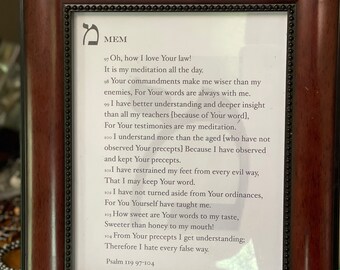 מ MEM
97 Oh, how I love Your law!
It is my meditation all the day.
98 Your commandments make me wiser than my
enemies, For Your words are always with me.
99 I have better understanding and deeper insight
than all my teachers [because of Your word],
For Your testimonies are my meditation.
100 I understand more than the aged [who have not
observed Your precepts] Because I have observed
and kept Your precepts.
101 I have restrained my feet from every evil way,
That I may keep Your word.
102 I have not turned aside from Your ordinances,
For You Yourself have taught me.
103 How sweet are Your words to my taste,
Sweeter than honey to my mouth!
104 From Your precepts I get understanding;
Therefore I hate every false way.
Psalm 119 97-104